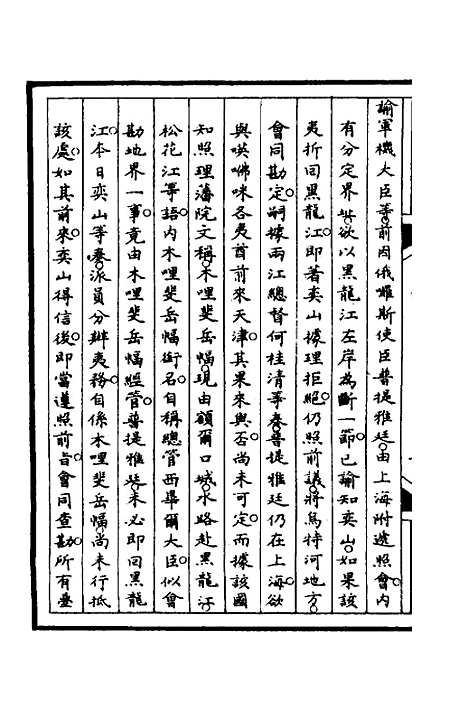 諭軍機大臣等前因俄囉斯使臣普提雅廷由上海附遞照會內
有分定界址欲以黑龍江左岸為斷一節已諭知奕山如果該
夷折回黑龍江即著奕山據理拒絕仍照前議將烏特河地方
會同勘定嗣據兩江總督何桂清等奏普提雅廷仍在上海欲
與㖫咈咪各夷酋前來天津其果來與否尚未可定而據該國
知照理藩院文稱木哩斐岳幅現由額爾口城水路赴黑龍江
松花江等語內木哩斐岳幅銜名自稱總管西畢爾大臣似會
勘地界一事竟由木哩斐岳幅經管普提雅廷未必即回黑龍
江本日奕山等奏派員分辦夷務自係木哩斐岳幅尚未行抵
該處如其前來奕山得信後即當遵照前旨會同查勘所有臺